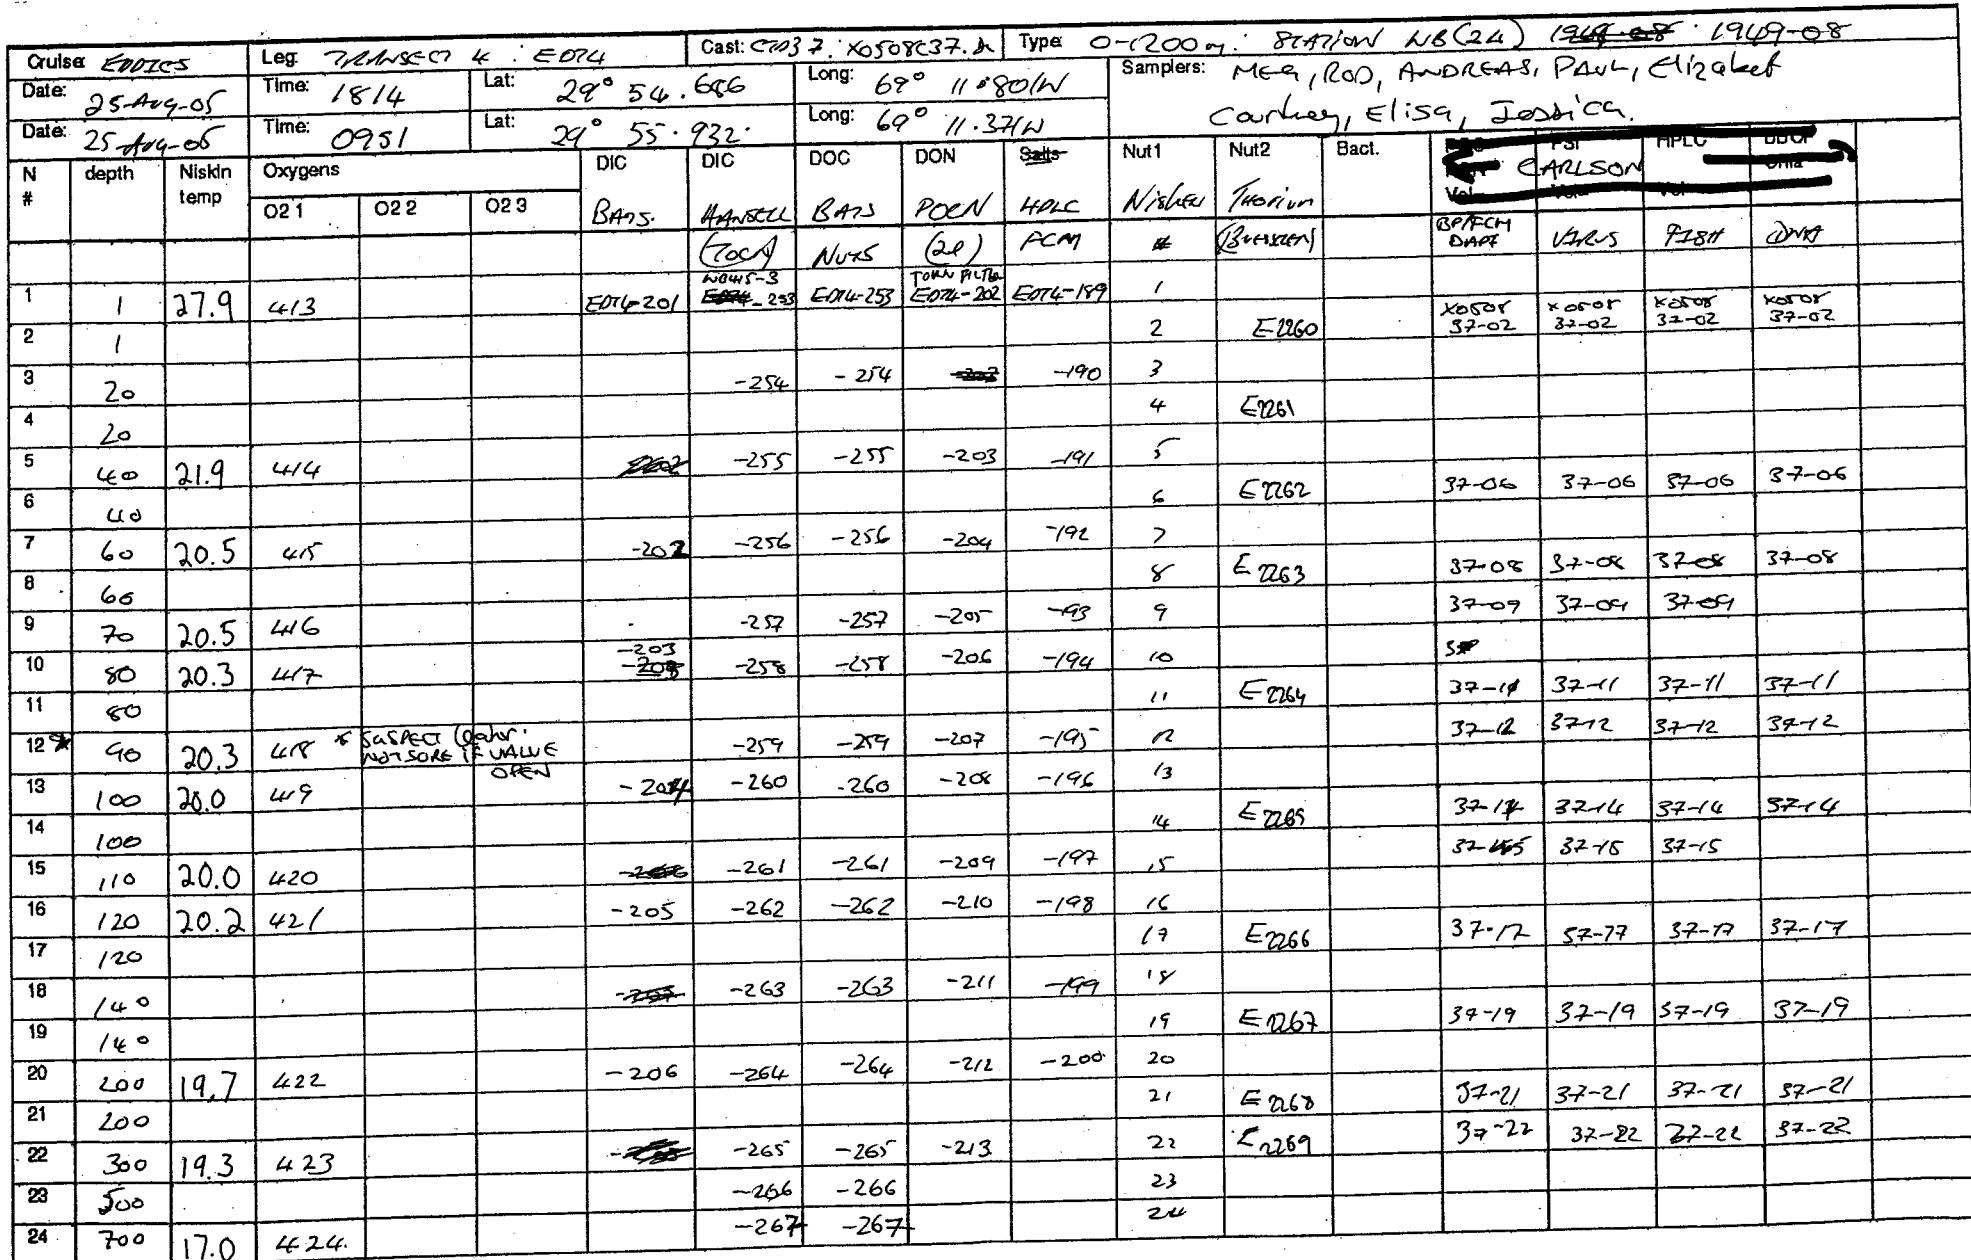 Cruise: EDDIES Leg: TRANSECT 4 : EDT4 Cast: CTD37: X0508C37.DA Type 0-1200m: STATION WB(24) 1949-08
Date: 25-Aug-05 Time: 1814 Lat: 29° 54.686 Long: 69° 11.801W Samplers: MEG, ROD, ANDREAS, PAUL, Elizabeth
Courtney, Elisa, Jessica.
Date: 25-Aug-05 Time: 0951 Lat: 29° 55.932 Long: 69° 11.371W
N # depth Niskin temp Oxygens DIC DIC DOC DON Salts Nut1 Nut2 Bact. HPLC CARLSON
O21 O22 O23 BATS. HANSELL BATS POCN HPLC Niskin Thorium
(TOC) NUTS (2l) FCM # (BUESSELER) BP/FCM DAPI VIRUS FISH DNA
WB45-3 TORN FILTER
1 1 27.9 413 EDT4-201 EDT4-253 EDT4-253 EDT4-202 EDT4-189 1
2 1 2 E2260 X0508 37-02 X0508 37-02 X0508 37-02 X0508 37-02
3 20 -254 -254 -190 3
4 20 4 E2261
5 40 21.9 414 -255 -255 -203 -191 5
6 40 6 E2262 37-06 37-06 37-06 37-06
7 60 20.5 415 -202 -256 -256 -204 -192 7
8 60 8 E2263 37-08 37-08 37-08 37-08
9 70 20.5 416 -257 -257 -205 -193 9 37-09 37-09 37-09
10 80 20.3 417 -203 -258 -258 -206 -194 10
11 80 11 E2264 37-11 37-11 37-11 37-11
12* 90 20.3 418 * SUSPECT NOT SURE IF VALUE OPEN -259 -259 -207 -195 12 37-12 37-12 37-12 37-12
13 100 20.0 419 -204 -260 -260 -208 -196 13
14 100 14 E2265 37-14 37-14 37-14 37-14
15 110 20.0 420 -261 -261 -209 -197 15 37-15 37-15 37-15
16 120 20.2 421 -205 -262 -262 -210 -198 16
17 120 17 E2266 37-17 37-17 37-17 37-17
18 140 -263 -263 -211 -199 18
19 140 19 E2267 37-19 37-19 37-19 37-19
20 200 19.7 422 -206 -264 -264 -212 -200 20
21 200 21 E2268 37-21 37-21 37-21 37-21
22 300 19.3 423 -265 -265 -213 22 E2269 37-22 37-22 37-22 37-22
23 500 -266 -266 23
24 700 17.0 424. -267 -267 24